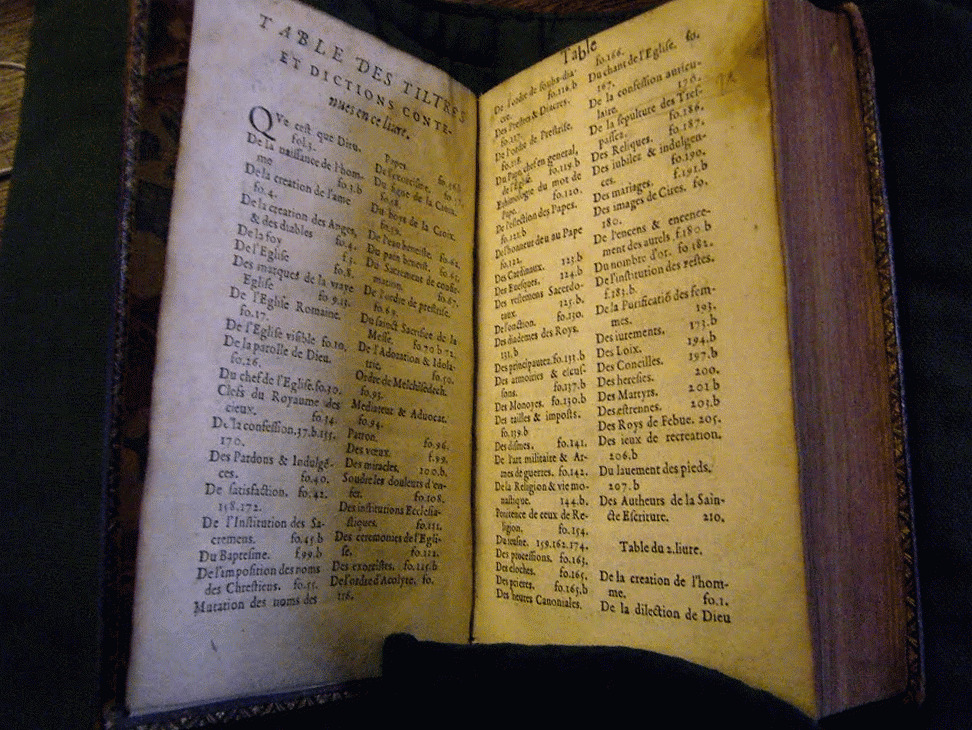 TABLE DES TILTRES
ET DICTIONS CONTE-
nues en ce liure.
QVe cest que Dieu.
fol.3.
De la naissance de l'hom-
me fo.3.b
De la creation de l'ame
fo.4.
De la creation des Anges,
& des diables fo.4.
De la foy f.5.
De l'Eglise fo.8.
Des marques de la vraye
Eglise fo 9.13.
De l'Eglise Romaine.
fo.17.
De l'Eglise visible fo.10.
De la parolle de Dieu.
fo.26.
Du chef de l'Eglise.fo.30.
Clefs du Royaume des
cieux. fo.34.
De la confession.37.b.135.
170.
Des Pardons & Indulgé-
ces. fo.40.
De satisfaction. fo.42.
158.172.
De l'Institution des Sa-
cremens. fo.45.b
Du Baptesme. f.99.b
De l'imposition des noms
des Chrestiens. fo.55.
Mutation des noms des
Papes.
De l'exorcisme.
Du signe de la Croix.
Du boys de la Croix.
fo.59.
De l'eau beneiste. fo.62.
Du pain beneist.
Du Sacrement de confir-
mation. fo.67.
De l'ordre de prestrise.
fo.69.
Du sainct Sacrifice de la
Messe. fo.70 b 72.
De l'Adoration & Idola-
trie. fo.50.
Ordre de Melchisedech.
fo.93.
Mediateur & Aduocat.
fo.94.
Patron. fo.96.
Des vœux. f.99.
Des miracles. 100.b.
Soudre les douleurs d'en-
fer. fo.108.
Des institutions Ecclesia-
stiques. fo.111.
Des ceremonies de l'Egli-
se. fo.112.
Des exorcistes. fo.115.b
De l'ordre d'Acolyte, fo.
116.
Table
De l'ordre de soubs-dia-
cre. fo.116.b
Des Prestres & Diacres.
fo.117.
De l'ordre de Prestrise.
fo.118.
Du Pape chef en general,
de l'Eglise. fo.119.b
Ethimologie du mot de
Pape. fo.120.
De l'eslection des Papes.
fo.121.b
De l'honneur deu au Pape
fo.122.
Des Cardinaux. 123.b
Des Euesques. 124.b
Des vestemens Sacerdo-
taux. 125.b.
De l'onction. fo.130.
Des diademes des Roys.
131.b
Des principautez.fo.131.b
Des armoiries & escus-
sons. fo.137.b
Des Monoyes. fo.130.b
Des tailles & imposts.
fo.139.b
Des dismes. fo.141.
De l'art militaire & Ar-
mes de guerres. fo.142.
De la Religion & vie mo-
nastique. 144.b.
Penitence de ceux de Re-
ligion. fo.154.
Du ieusne. 159.162.174.
Des processions. fo.163.
Des cloches. fo.165.
Des prieres. fo.165.b
Des heures Canoniales.
fo.166.
Du chant de l'Eglise. fo.
167.
De la confession auricu-
laire. 170.
De la sepulture des Tres-
passez. fo.186.
Des Reliques. fo.187.
Des iubilez & indulgen-
ces. fo.190.
Des mariages. f.191.b
Des images de Cires. fo.
180.
De l'encens & encence-
ment des autels f.180.b
Du nombre d'or. fo 182.
De l'institution des festes.
f.183.b.
De la Purificatiō des fem-
mes. 193.
Des iurements. 173.b
Des Loix. 194.b
Des Concilles. 197.b
Des heresies. 200.
Des Martyrs. 201 b
Des estrennes. 203.b
Des Roys de Febue. 205.
Des ieux de recreation.
206.b
Du lauement des pieds.
207.b
Des Autheurs de la Sain-
cte Escriture. 210.
Table du 2.liure.
De la creation de l'hom-
me. fo.1.
De la dilection de Dieu